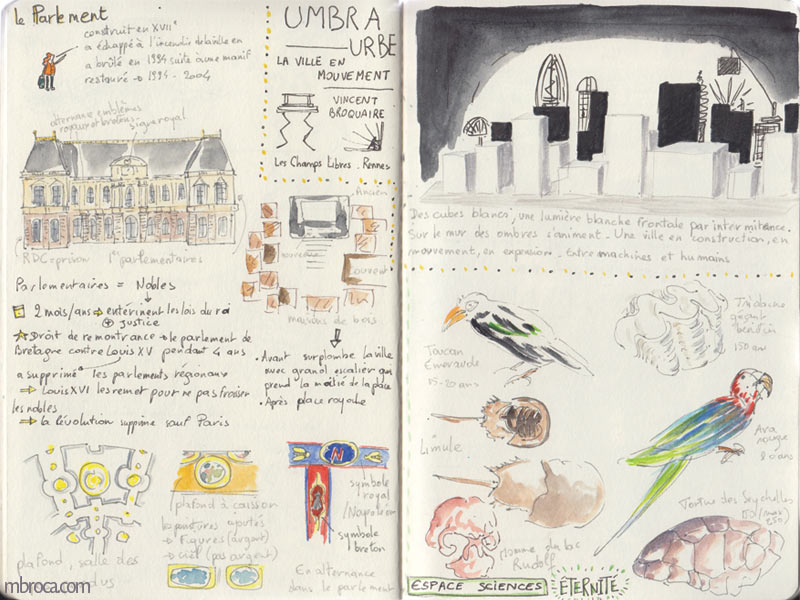 le Parlement
construit en XVIIe
a échappé à l'incendie de la ville en
a brûlé en 1994 suite à une manif
restauré → 1994 - 2004
alternance emblèmes
signe royal
RDC prison 1er parlementaires
Parlementaires = Nobles
2 mois/ans → entérinent les lois du roi
⊕ justice
Droit de remontrance → le parlement de
Bretagne contre Louis XV pendant 4 ans
a supprimé les parlements régionaux
⇒ Louis XVI les remet pour ne pas froisser
les nobles
⇒ la Révolution supprime sauf Paris
plafond, salle des
plafond à caisson
peintures ajoutées
→ Figures (argent)
→ ciel (pas argent)
symbole
royal
/Napoléon
symbole
breton
En alternance
dans le parlement
UMBRA
URBE
LA VILLE EN
MOUVEMENT
VINCENT
BROQUAIRE
Les Champs Libres. Rennes
Ancien
nouveau
Couvent
maisons de bois
. Avant surplombe la ville
avec grand escalier qui
prend la moitié de la place
. Après place royale
Des cubes blancs, une lumière blanche frontale par intermitence.
Sur le mur des ombres s'animent - Une ville en construction, en
mouvement, en expansion. Entre machines et humains
Toucan
Emeraude
15-20 ans
Tridacne
géant
bénitier
150 ans
Limule
Ara
rouge
80 ans
Homme du lac
Rudolf
Tortue des Seychelles
150 (max
250)
ESPACE SCIENCES
ÉTERNITÉ
mbroca.com